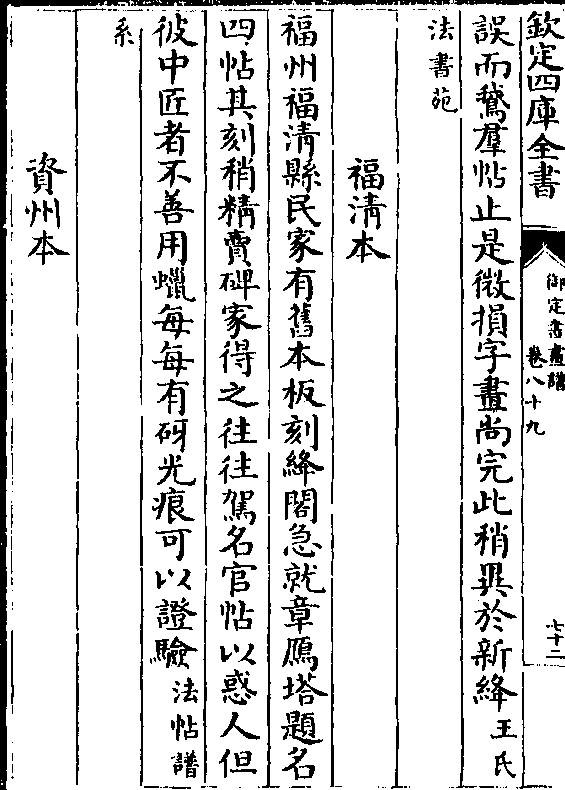 欽定四庫全書
御定書畫譜
卷八十九
七十二
誤而鵞羣帖止是微損字畫尚完此稍異於新絳王氏
法書苑
福清本
福州福清縣民家有舊本板刻絳閣急就章鴈塔題名
四帖其刻稍精賣碑家得之往往駕名官帖以惑人但
彼中匠者不善用蠟每每有砑光痕可以證驗法帖譜
系
資州本